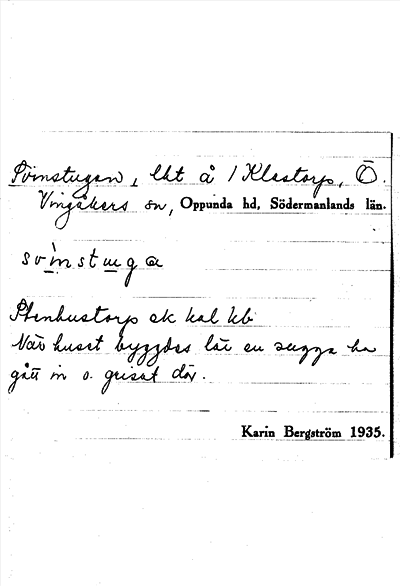 Svinstugan, lht å 1 Klastorp, Ö.
Vingåkers sn, Oppunda hd, Södermanlands län.
svinstuga
Stenhustorp ek kal kb
När huset byggdes lär en sugga ha
gått in o. grisat där.
Karin Bergström 1935.